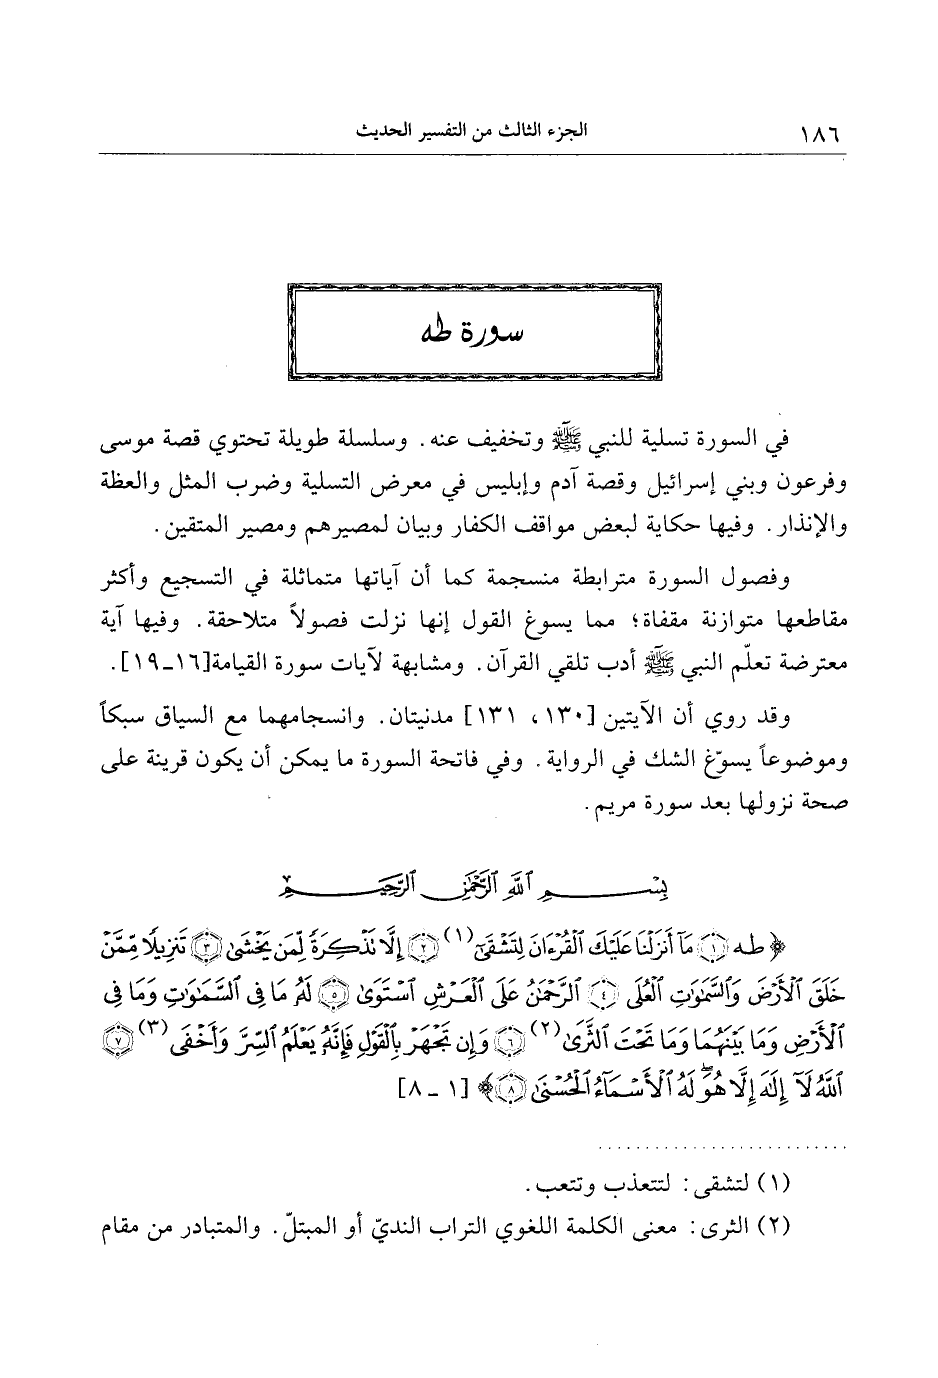 ١٨٦ الجزء الثالث من التفسير الحديث
سورة طه
في السورة تسلية للنبي ﷺ وتخفيف عنه. وسلسلة طويلة تحتوي قصة موسى
وفرعون وبني إسرائيل وقصة آدم وإبليس في معرض التسلية وضرب المثل والعظة
والإنذار. وفيها حكاية لبعض مواقف الكفار وبيان لمصيرهم ومصير المتقين.
وفصول السورة مترابطة منسجمة كما أن آياتها متماثلة في التسجيع وأكثر
مقاطعها متوازنة مقفاة؛ مما يسوغ القول إنها نزلت فصولاً متلاحقة. وفيها آية
معترضة تعلّم النبي ﷺ أدب تلقي القرآن. ومشابهة لآيات سورة القيامة[١٦ـ١٩].
وقد روي أن الآيتين [١٣٠، ١٣١] مدنيتان. وانسجامهما مع السياق سبكاً
وموضوعاً يسوّغ الشك في الرواية. وفي فاتحة السورة ما يمكن أن يكون قرينة على
صحة نزولها بعد سورة مريم.
بِسْمِ ٱللَّهِ ٱلرَّحْمَٰنِ ٱلرَّحِيمِ
﴿ طه ١ مَآ أَنزَلْنَا عَلَيْكَ ٱلْقُرْءَانَ لِتَشْقَىٰٓ (١) ٢ إِلَّا تَذْكِرَةً لِّمَن يَخْشَىٰ ٣ تَنزِيلًا مِّمَّنْ
خَلَقَ ٱلْأَرْضَ وَٱلسَّمَٰوَٰتِ ٱلْعُلَى ٤ ٱلرَّحْمَٰنُ عَلَى ٱلْعَرْشِ ٱسْتَوَىٰ ٥ لَهُۥ مَا فِى ٱلسَّمَٰوَٰتِ وَمَا فِى
ٱلْأَرْضِ وَمَا بَيْنَهُمَا وَمَا تَحْتَ ٱلثَّرَىٰ (٢) ٦ وَإِن تَجْهَرْ بِٱلْقَوْلِ فَإِنَّهُۥ يَعْلَمُ ٱلسِّرَّ وَأَخْفَى (٣) ٧
ٱللَّهُ لَآ إِلَٰهَ إِلَّا هُوَ ۖ لَهُ ٱلْأَسْمَآءُ ٱلْحُسْنَىٰ ٨ ﴾ [١ ـ ٨]
(١) لتشقى: لتتعذب وتتعب.
(٢) الثرى: معنى الكلمة اللغوي التراب النديّ أو المبتلّ. والمتبادر من مقام